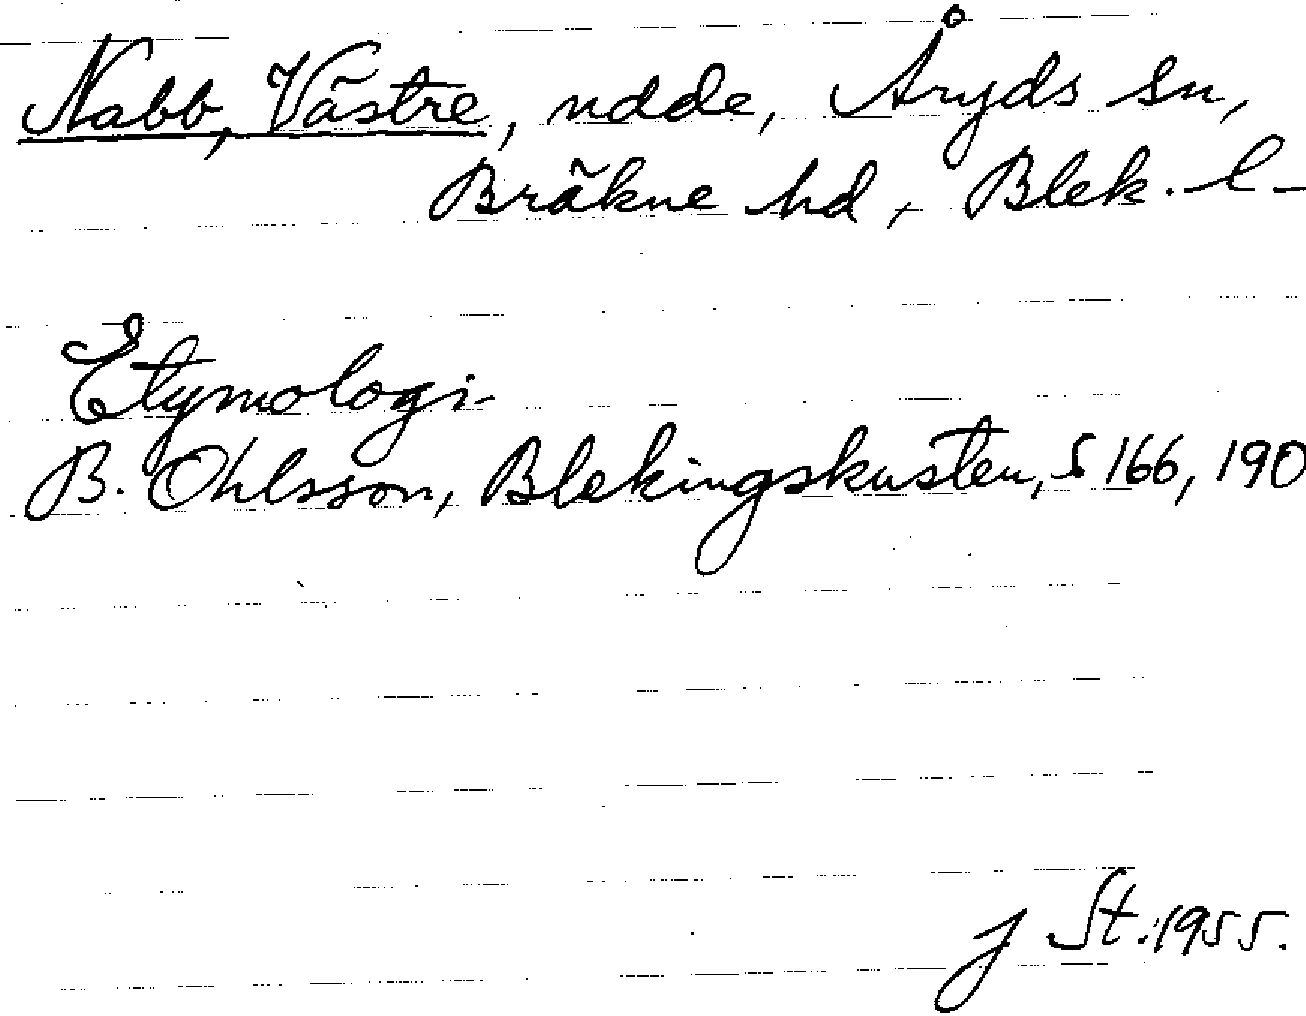 Nabb, Västre, udde, Åryds sn,
Bräkne hd, Blek. l.
Etymologi.
B. Ohlsson, Blekingskusten, s 166, 190
J St. 1955.